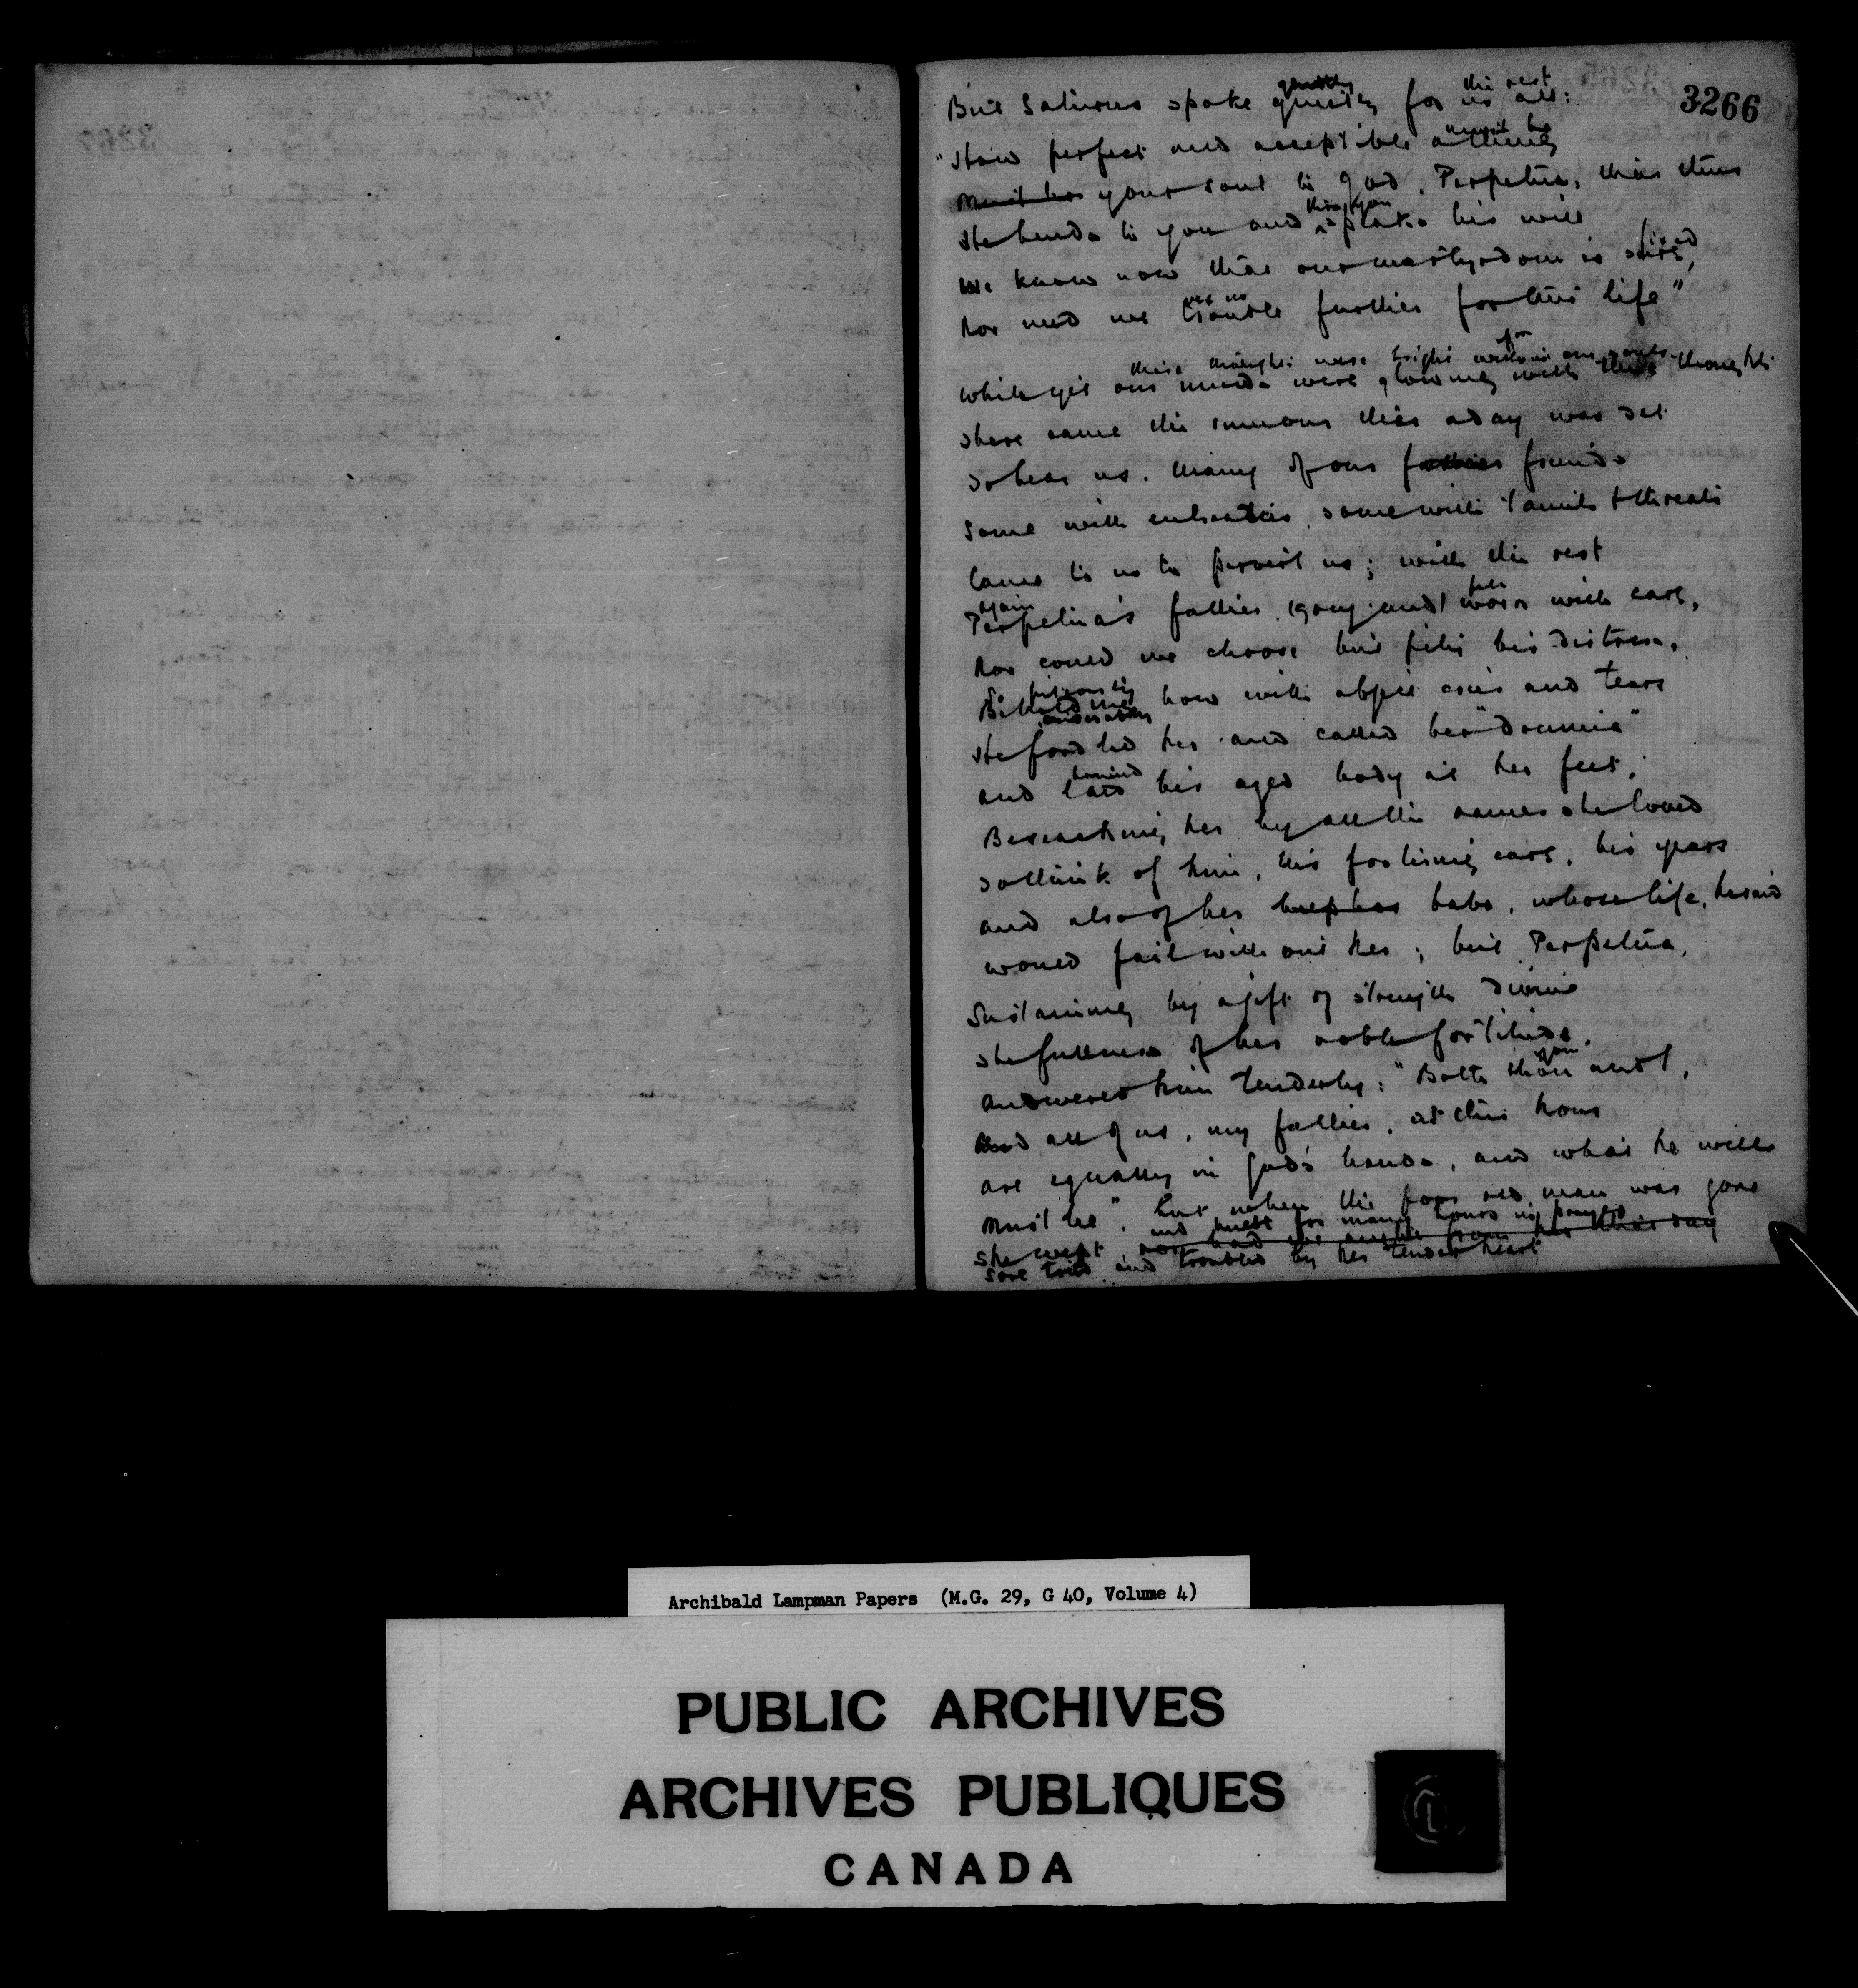 3266
gently the rest
But Saturus spoke quietly for us all:
must be
"How perfect and acceptible a thing
must be your soul to God, Perpetua, that thus
through you
He bends to you and speaks his will
fixed
We know now that our martyrdom is sure,
Nor need we trouble further for this life"
these thoughts were bright within our souls
While yet our minds were glowing with these thoughts
There came the rumour that a day was set
To hear us. Many of our friends
Some with entreaties, some with taunts & threats
Came to us to pervert us; with the rest
again
Perpetua's father (grey and) worn with care,
Nor could we choose but pity his distress,
So piteously
how with abject cries and tears
He fondled her and called her "Domina"
and laid his aged body at her feet,
Beseeching her by all the names she loved
To think of him, his fostering care, his years
and also of her babe, whose life, he said
would fail without her; but Perpetua,
Sustaining by a gift of strength divine
The fullness of her noble fortitude,
you
answered him tenderly: "Both thou and I,
And all of us, my father, at this hour
are equally in God's hands, and what he wills
Must be". But when the poor old man was gone
and knelt for many hours in prayer
She wept, nor had we aught from her that day
Sore tried and troubled by her tender heart
Archibald Lampman Papers (M.G. 29, G 40, Volume 4)
PUBLIC ARCHIVES
ARCHIVES PUBLIQUES
CANADA